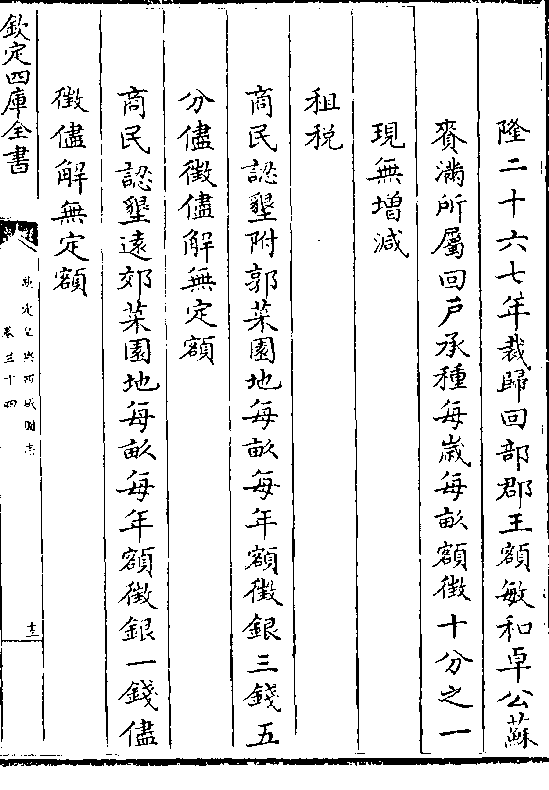 隆二十六七年裁歸回部郡王額敏和卓公蘇
賚滿所屬回戸承種每歲每畝額徴十分之一
現無增減
租税
商民認墾附郭菜園地每畝每年額徴銀三錢五
分儘徴儘解無定額
商民認墾遠郊菜園地每畝每年額徴銀一錢儘
徴儘解無定額
欽定四庫全書
欽定皇輿西域圖志
卷三十四
十三